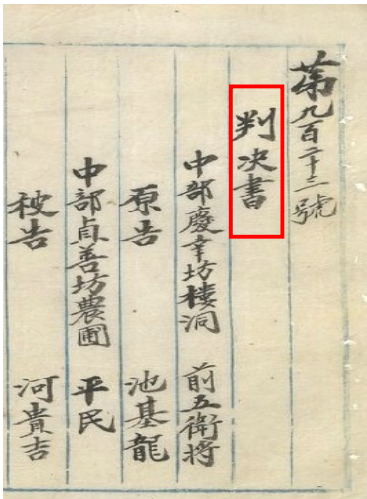 第九百二十三號
判決書
中部慶幸坊樓洞 前五衛將
原告 池基龍
中部貞善坊農圃 平民
被告 河貴吉